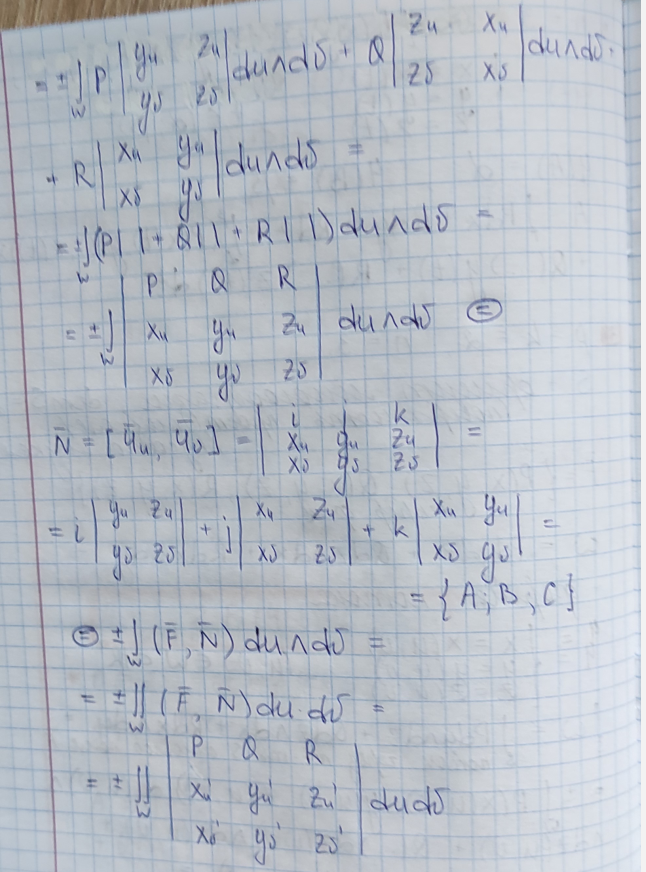 = ±∫_w P |y_u z_u; y_v z_v| du∧dv + Q |z_u x_u; z_v x_v| du∧dv
+ R |x_u y_u; x_v y_v| du∧dv =
= ±∫_w (P| | + Q| | + R| |) du∧dv =
= ±∫_w |P Q R; x_u y_u z_u; x_v y_v z_v| du∧dv ⊜
N̄ = [φ̄_u, φ̄_v] = |i j k; x_u y_u z_u; x_v y_v z_v| =
= i |y_u z_u; y_v z_v| + j |x_u z_u; x_v z_v| + k |x_u y_u; x_v y_v| =
= {A; B; C}
⊜ ±∫_w (F̄, N̄) du∧dv =
= ±∬_w (F̄, N̄) du·dv =
= ±∬_w |P Q R; x_u' y_u' z_u'; x_v' y_v' z_v'| du dv